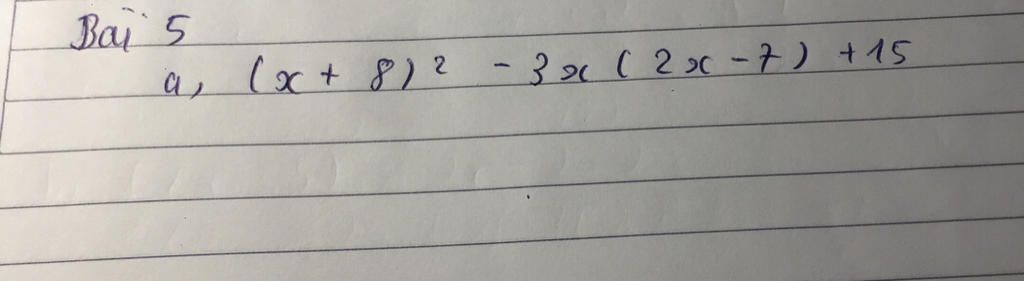 Bài 5
a, (x + 8)² - 3x (2x - 7) + 15